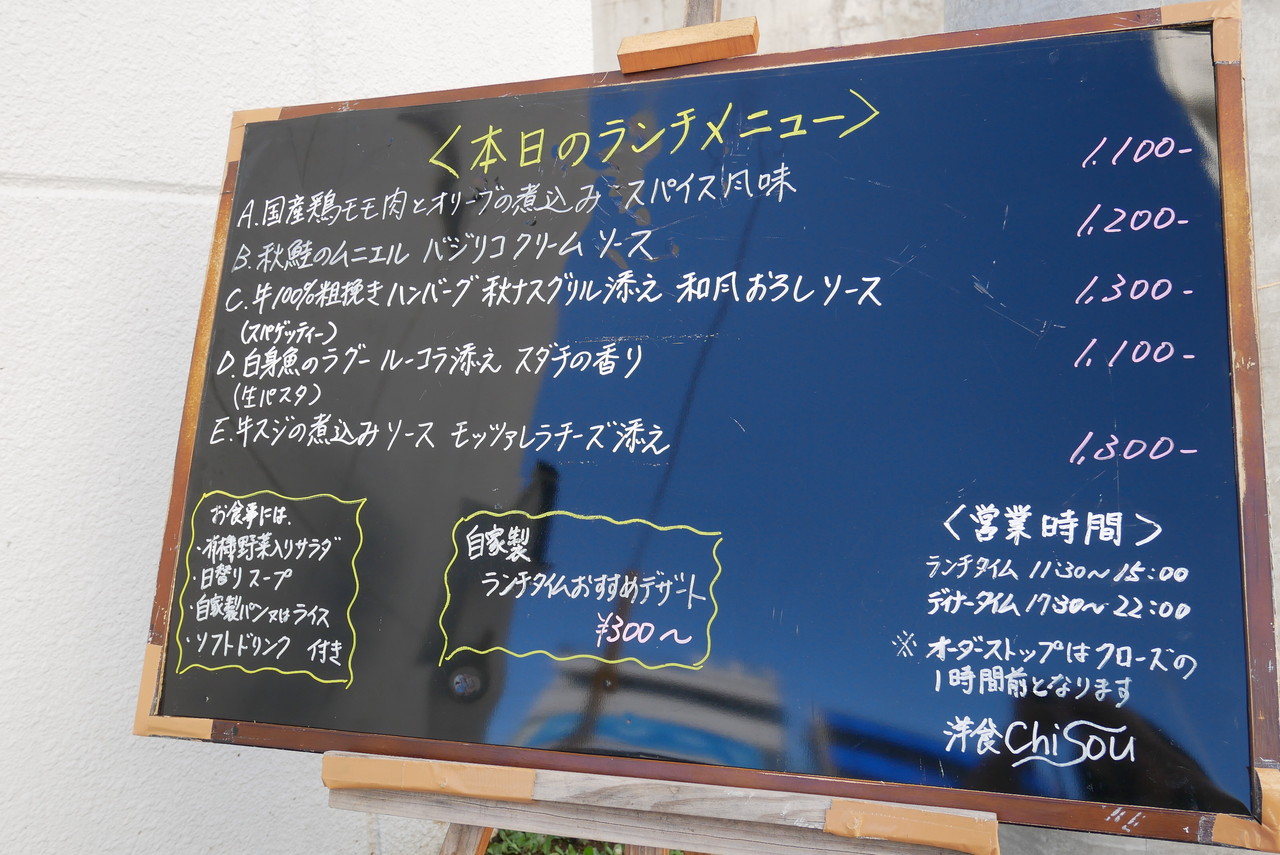 〈本日のランチメニュー〉
A.国産鶏モモ肉とオリーブの煮込み スパイス風味 1,100-
B.秋鮭のムニエル バジリコクリームソース 1,200-
C.牛100%粗挽きハンバーグ 秋ナスグリル添え 和風おろしソース 1,300-
(スパゲッティー)
D.白身魚のラグー ルーコラ添え スダチの香り 1,100-
(生パスタ)
E.牛スジの煮込みソース モッツァレラチーズ添え 1,300-
お食事には、
・有機野菜入りサラダ
・日替りスープ
・自家製パン又はライス
・ソフトドリンク 付き
自家製
ランチタイムおすすめデザート
¥300〜
〈営業時間〉
ランチタイム 11:30〜15:00
ディナータイム 17:30〜22:00
※オーダーストップはクローズの
1時間前となります
洋食ChiSou